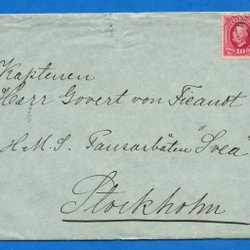 10
Kaptenen
Herr Govert von Fieandt
H.M.S. Pansarbåten "Svea"
Stockholm